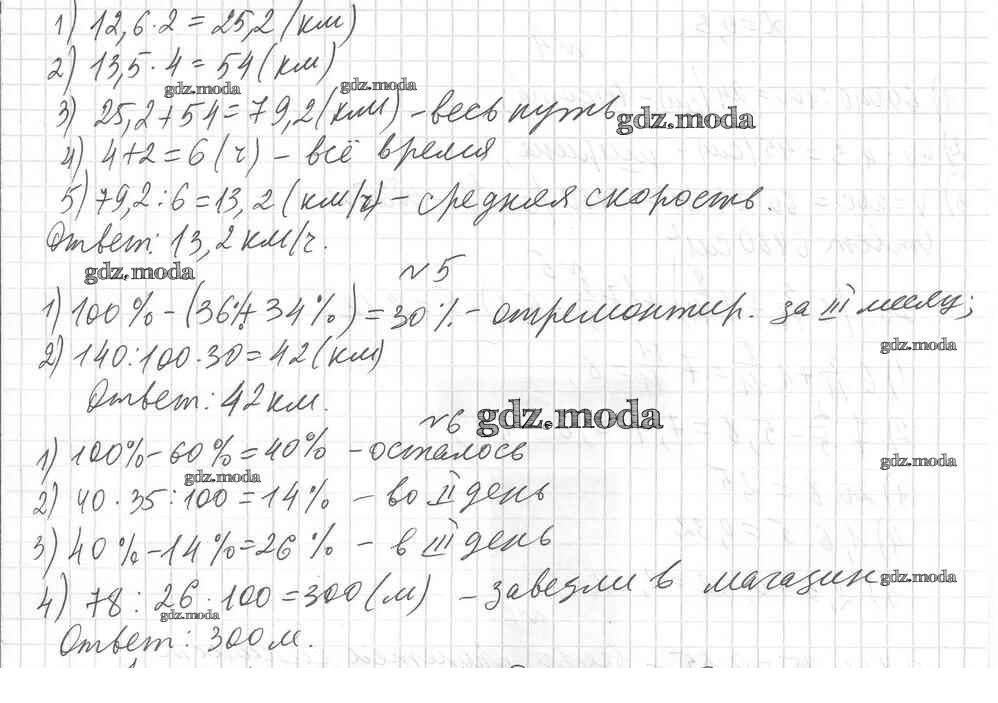 1) 12,6·2 = 25,2 (км)
2) 13,5·4 = 54 (км)
gdz.moda gdz.moda
3) 25,2+54=79,2(км) - весь путь
gdz.moda
4) 4+2=6(ч) - всё время
5) 79,2:6=13,2 (км/ч) - средняя скорость.
Ответ: 13,2 км/ч.
gdz.moda
№5
1) 100% - (36%+34%) = 30% - отремонтир. за III месяц;
gdz.moda
2) 140:100·30=42(км)
Ответ: 42 км.
№6 gdz.moda
1) 100%-60%=40% - осталось
gdz.moda
gdz.moda
2) 40·35:100=14% - во II день
3) 40%-14%=26% - в III день
4) 78:26·100=300(м) - завезли в магазин
gdz.moda
gdz.moda
Ответ: 300м.